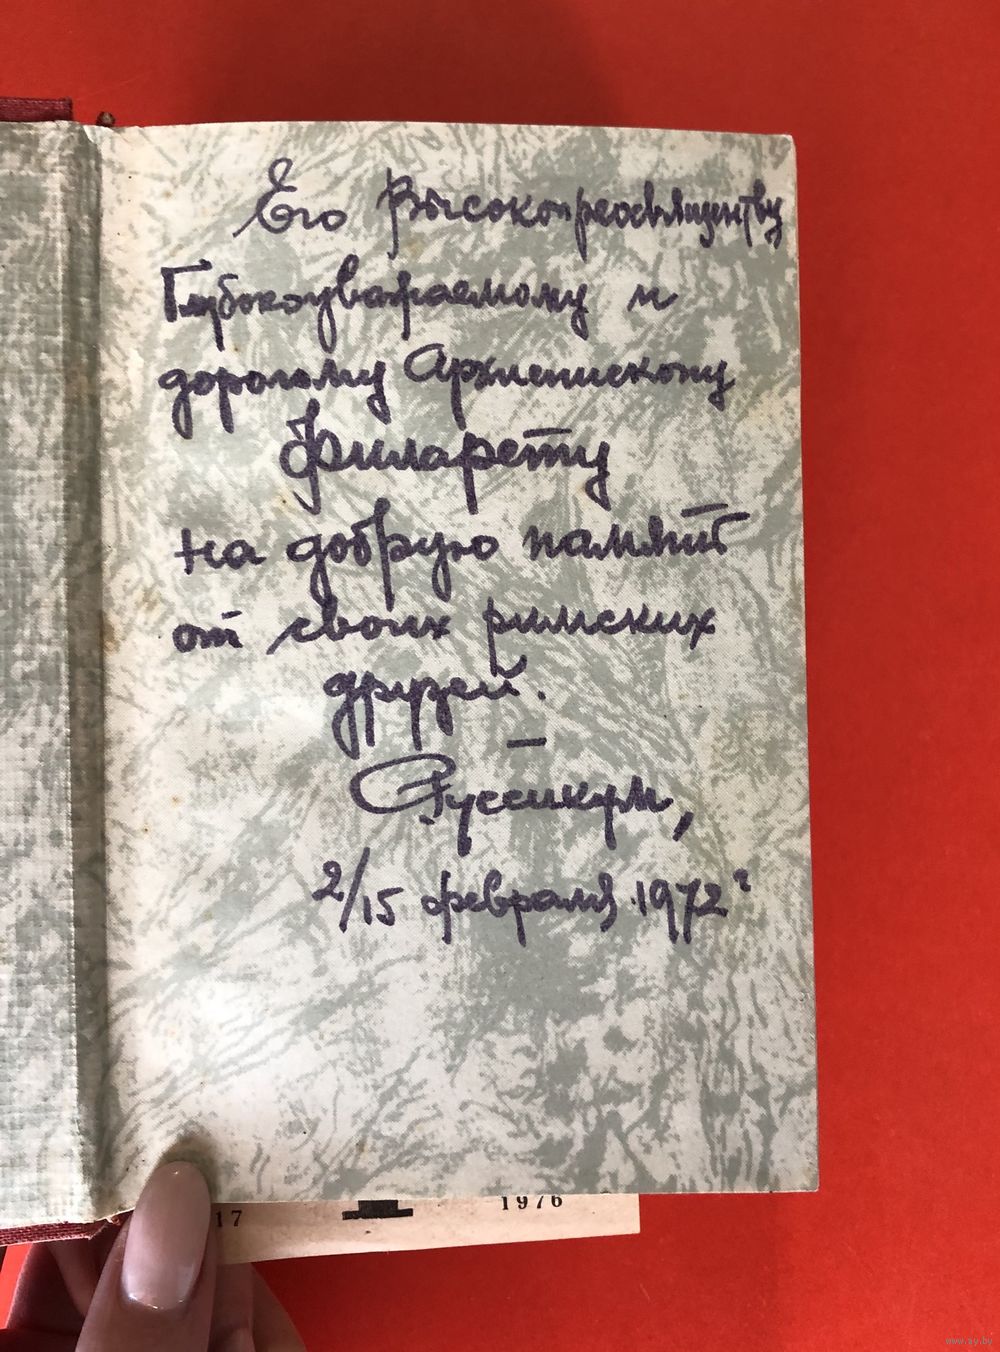 Его Высокопреосвященству
Глубокоуважаемому и
дорогому Архиепископу
Филарету
на добрую память
от своих римских
друзей.
—
Руссикум,
2/15 февраля 1972 г
17
1976
www.ay.by